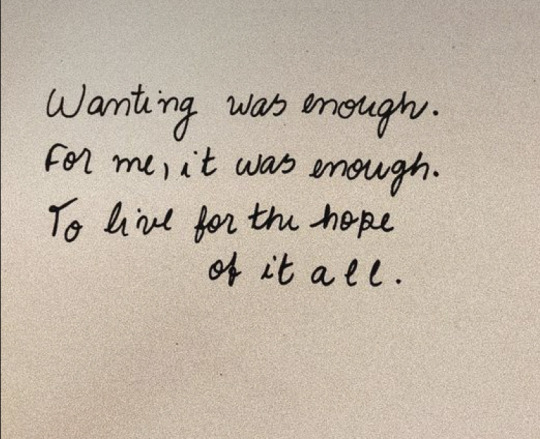 Wanting was enough.
For me, it was enough.
To live for the hope
of it all.